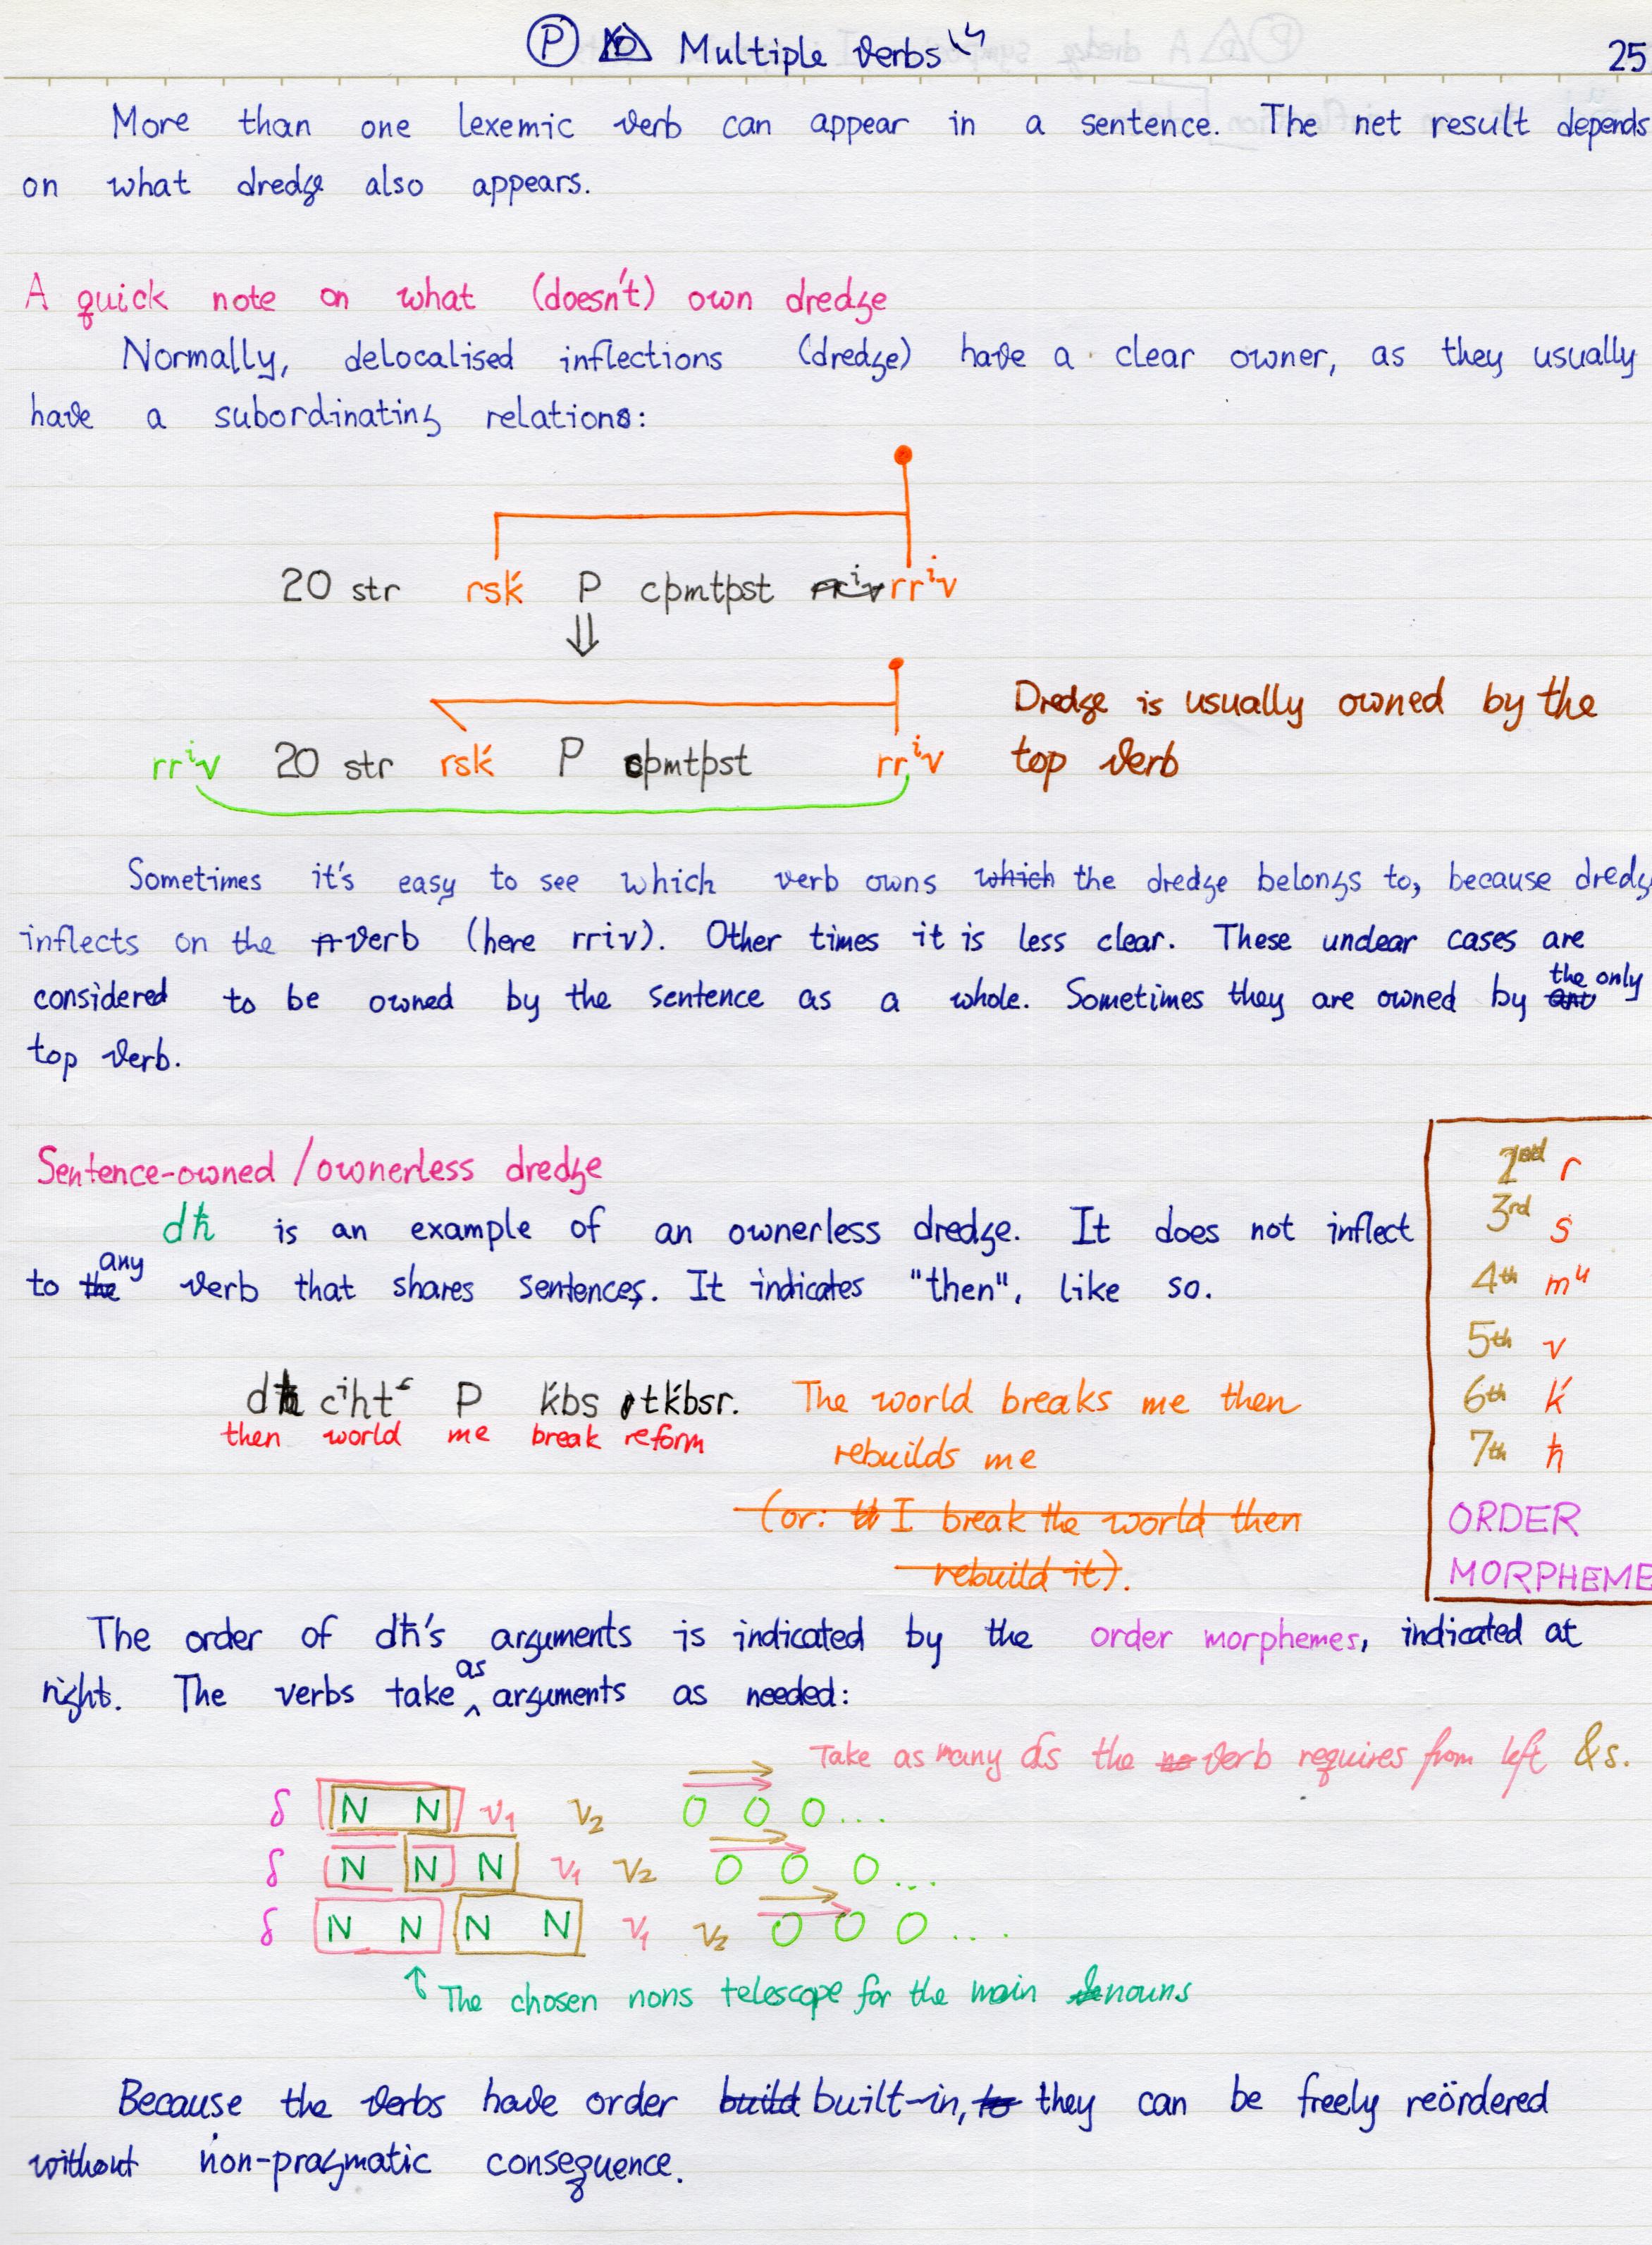 P Multiple verbs 25
More than one lexemic verb can appear in a sentence. The net result depends
on what dredge also appears.
A quick note on what (doesn't) own dredge
Normally, delocalised inflections (dredge) have a clear owner, as they usually
have a subordinating relations:
20 str rsḱ P cþmtþst rrⁱv rrⁱv
⇓
rrⁱv 20 str rsḱ P cþmtþst rrⁱv
Dredge is usually owned by the
top verb
Sometimes it's easy to see which verb owns which the dredge belongs to, because dredg
inflects on the verb (here rriv). Other times it is less clear. These unclear cases are
considered to be owned by the sentence as a whole. Sometimes they are owned by the only
top verb.
Sentence-owned / ownerless dredge
dħ is an example of an ownerless dredge. It does not inflect
to the any verb that shares sentences. It indicates "then", like so.
2nd r
3rd s
4th mᵘ
5th v
6th ḱ
7th ħ
ORDER
MORPHEME
dħ cⁱht P ḱbs tḱbsr.
then world me break reform
The world breaks me then
rebuilds me
(or: I break the world then
rebuild it).
The order of dħ's arguments is indicated by the order morphemes, indicated at
right. The verbs take as arguments as needed:
Take as many as the verb requires from left &s.
δ N N V₁ V₂ O O O...
δ N N N V₁ V₂ O O O...
δ N N N N V₁ V₂ O O O...
↑ The chosen nons telescope for the main nouns
Because the verbs have order build built-in, to they can be freely reördered
without non-pragmatic consequence.